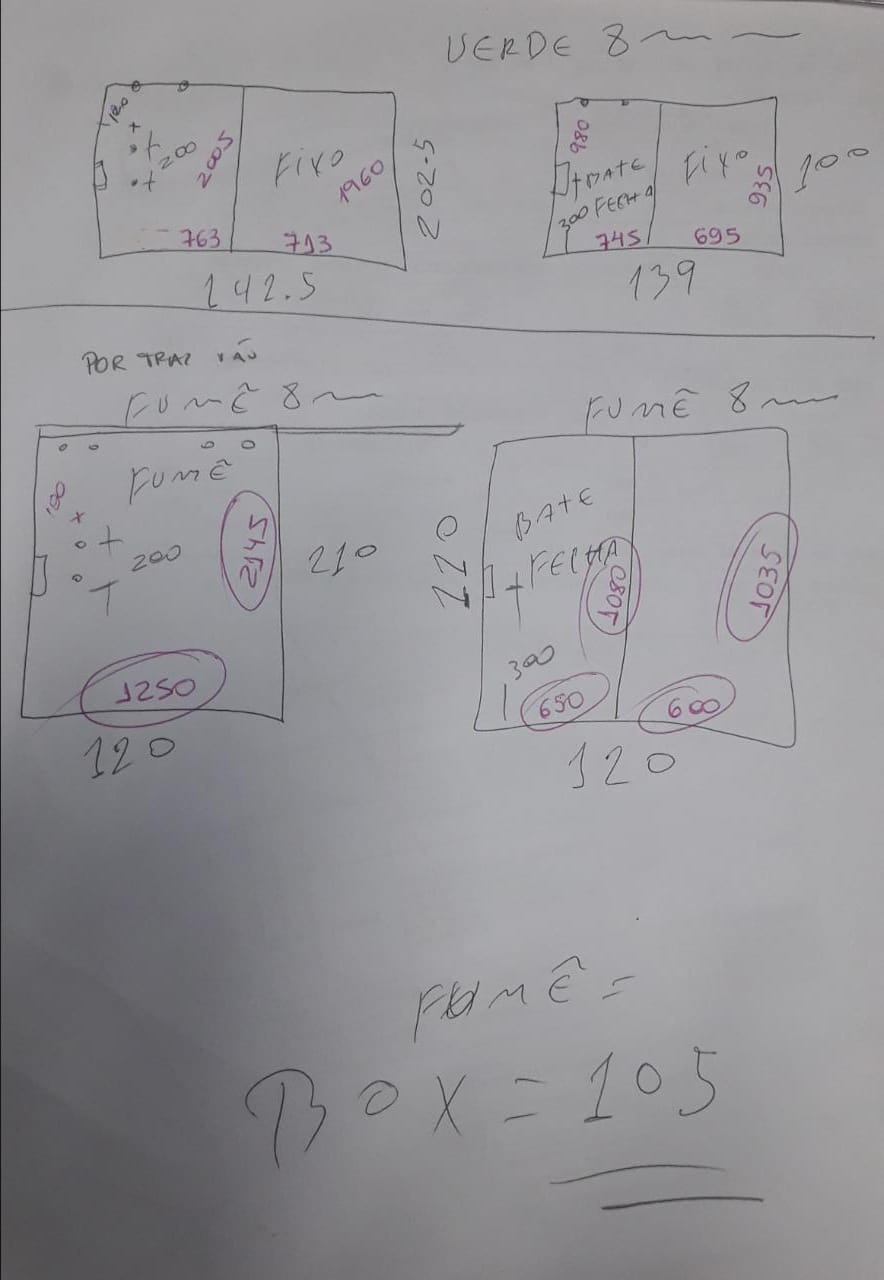 VERDE 8mm
120
200
2005
FIXO
1960
202.5
763
713
142.5
980
BATE
300 FECHA
FIXO
935
100
745
695
139
POR TRAZ VÃO
FUMÊ 8mm
FUMÊ
150
200
2145
210
1250
120
FUMÊ 8mm
110
BATE
FECHA
1080
1035
300
650
600
120
FUMÊ =
BOX = 105